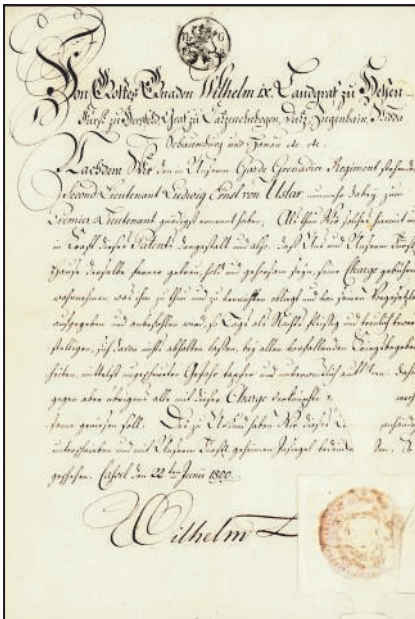 Von Gottes Gnaden Wilhelm IX. Landgraf zu Hessen
Fürst zu Hersfeld, Graf zu Catzenelnbogen, Dietz, Ziegenhain, Nidda
Schaumburg und Hanau etc. etc.
Nachdem Wir den in Unserm Garde Grenadier Regiment stehenden
Second Lieutenant Ludwig Ernst von Uslar, nunmehr dabey zum
Premier Lieutenant gnädigst ernannt haben. Als thun Wir solches hiermit und
in Kraft dieses Patents dergestalt und also, daß Uns und Unserm Fürstl.
Hause derselbe ferner getreu, hold und gehorsam seyn, seine Charge gebührend
wahrnehmen, was ihm zu thun und zu verrichten obliegt und von seinen Vorgesetzten
aufgegeben und anbefohlen wird, so Tags als Nachts fleißig und
sich davon nichts abhalten lassen, bey allen vorfallenden Kriegsbegeben
heiten
gegen aber übrigens alle mit dieser Charge verknüpfte
geniesen soll. Des zu Urkund haben Wir dieses
unterschrieben und mit Unserm Fürstl. geheimen Insiegel
geschehen Cassel den 22ten Junii 1800.
Wilhelm L